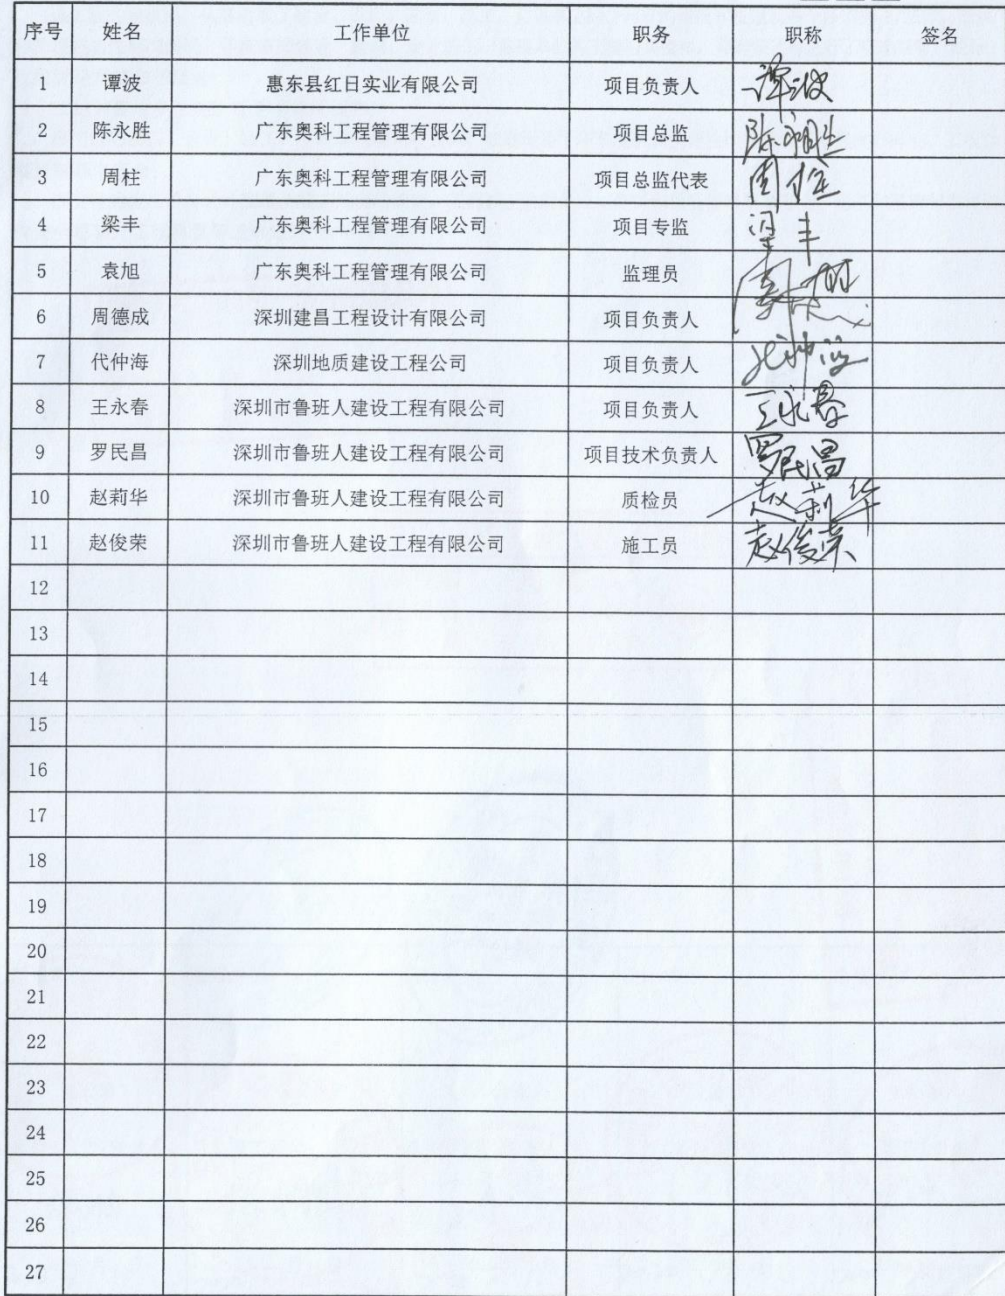 序号 姓名 工作单位 职务 职称 签名
1 谭波 惠东县红日实业有限公司 项目负责人 谭波
2 陈永胜 广东奥科工程管理有限公司 项目总监
3 周柱 广东奥科工程管理有限公司 项目总监代表 周柱
4 梁丰 广东奥科工程管理有限公司 项目专监 梁丰
5 袁旭 广东奥科工程管理有限公司 监理员
6 周德成 深圳建昌工程设计有限公司 项目负责人
7 代仲海 深圳地质建设工程公司 项目负责人 代仲海
8 王永春 深圳市鲁班人建设工程有限公司 项目负责人 王永春
9 罗民昌 深圳市鲁班人建设工程有限公司 项目技术负责人 罗民昌
10 赵莉华 深圳市鲁班人建设工程有限公司 质检员 赵莉华
11 赵俊荣 深圳市鲁班人建设工程有限公司 施工员 赵俊荣
12
13
14
15
16
17
18
19
20
21
22
23
24
25
26
27